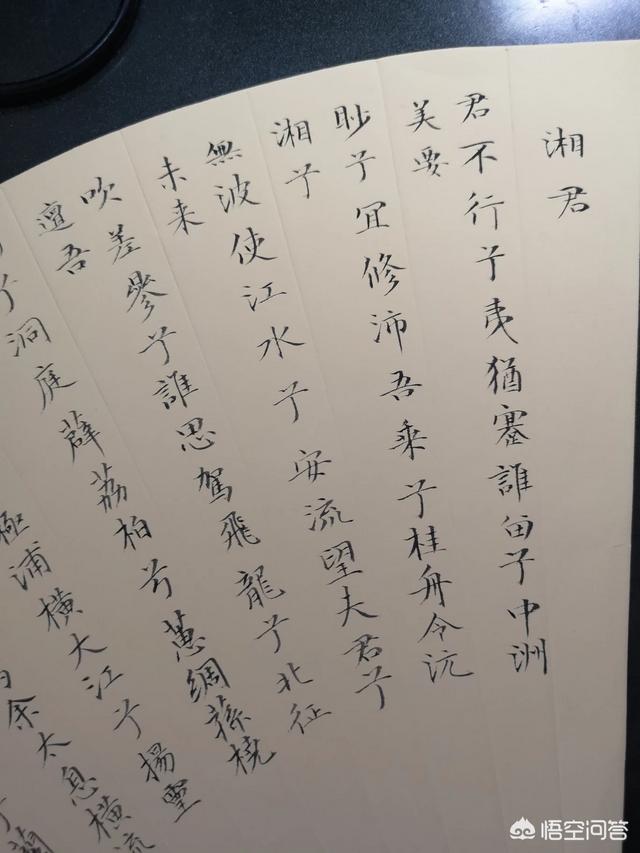 湘君
君不行兮夷猶蹇誰留兮中洲
美要
眇兮宜修沛吾乘兮桂舟令沅
湘兮
無波使江水兮安流望夫君兮
未来
吹差參兮誰思駕飛龍兮北征
邅吾
兮洞庭薜荔柏兮蕙綢蓀橈
極浦橫大江兮揚靈
余太息橫流
蘭
悟空问答